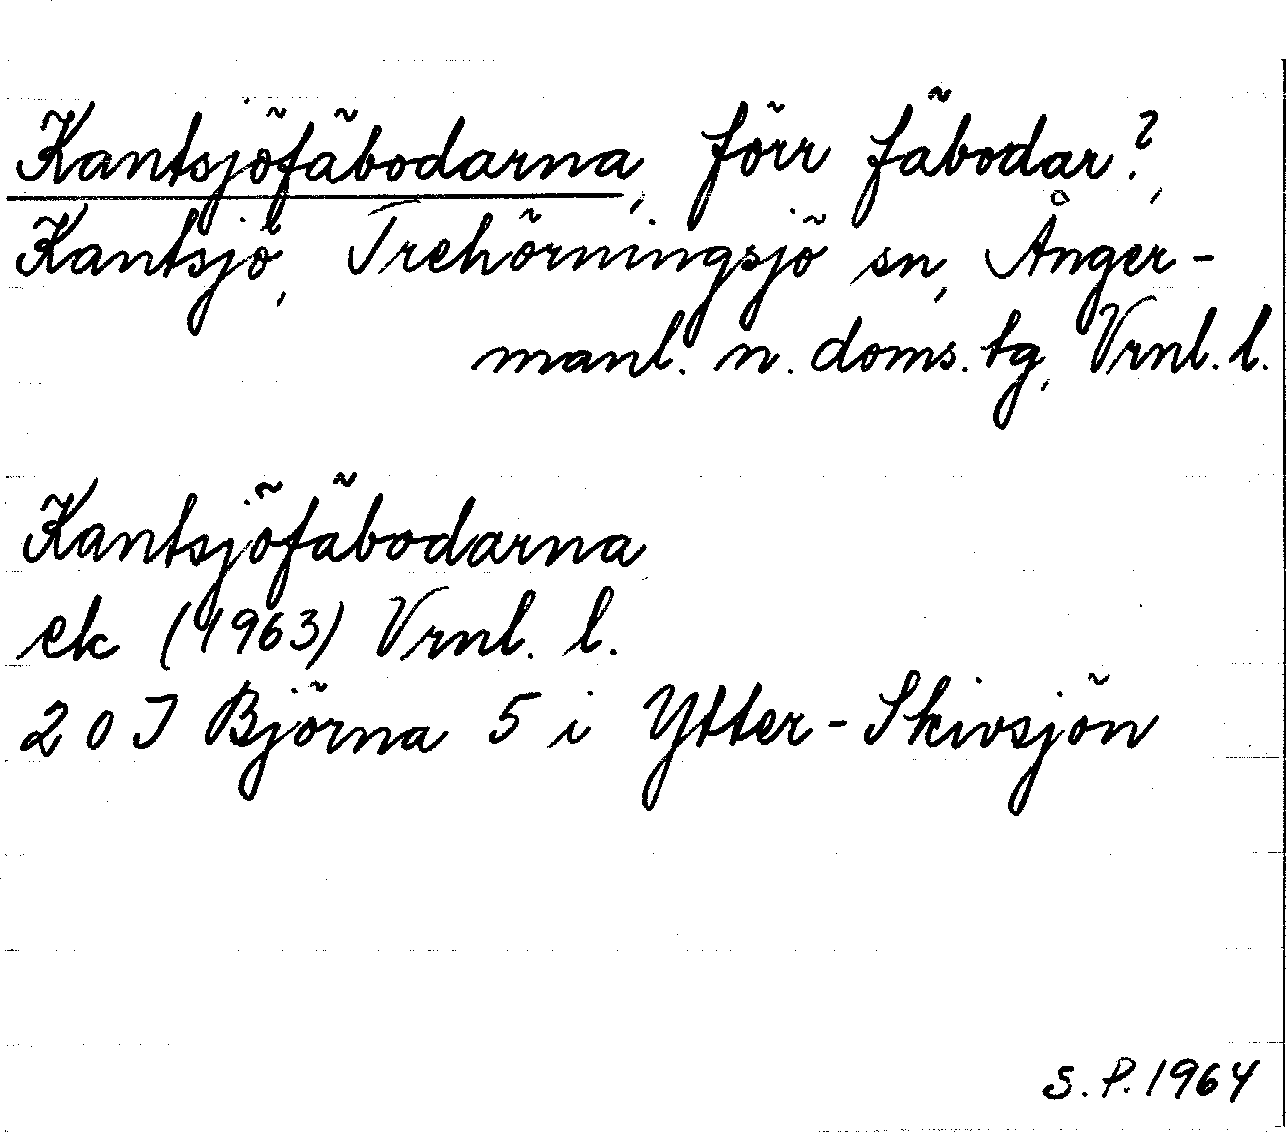 Kantsjöfäbodarna, förr fäbodar?,
Kantsjö, Trehörningsjö sn, Ånger-
manl. n. doms. tg, Vrnl. l.
Kantsjöfäbodarna
ek (1963) Vrnl. l.
20 J Björna 5 i Ytter-Skivsjön
S.P. 1964